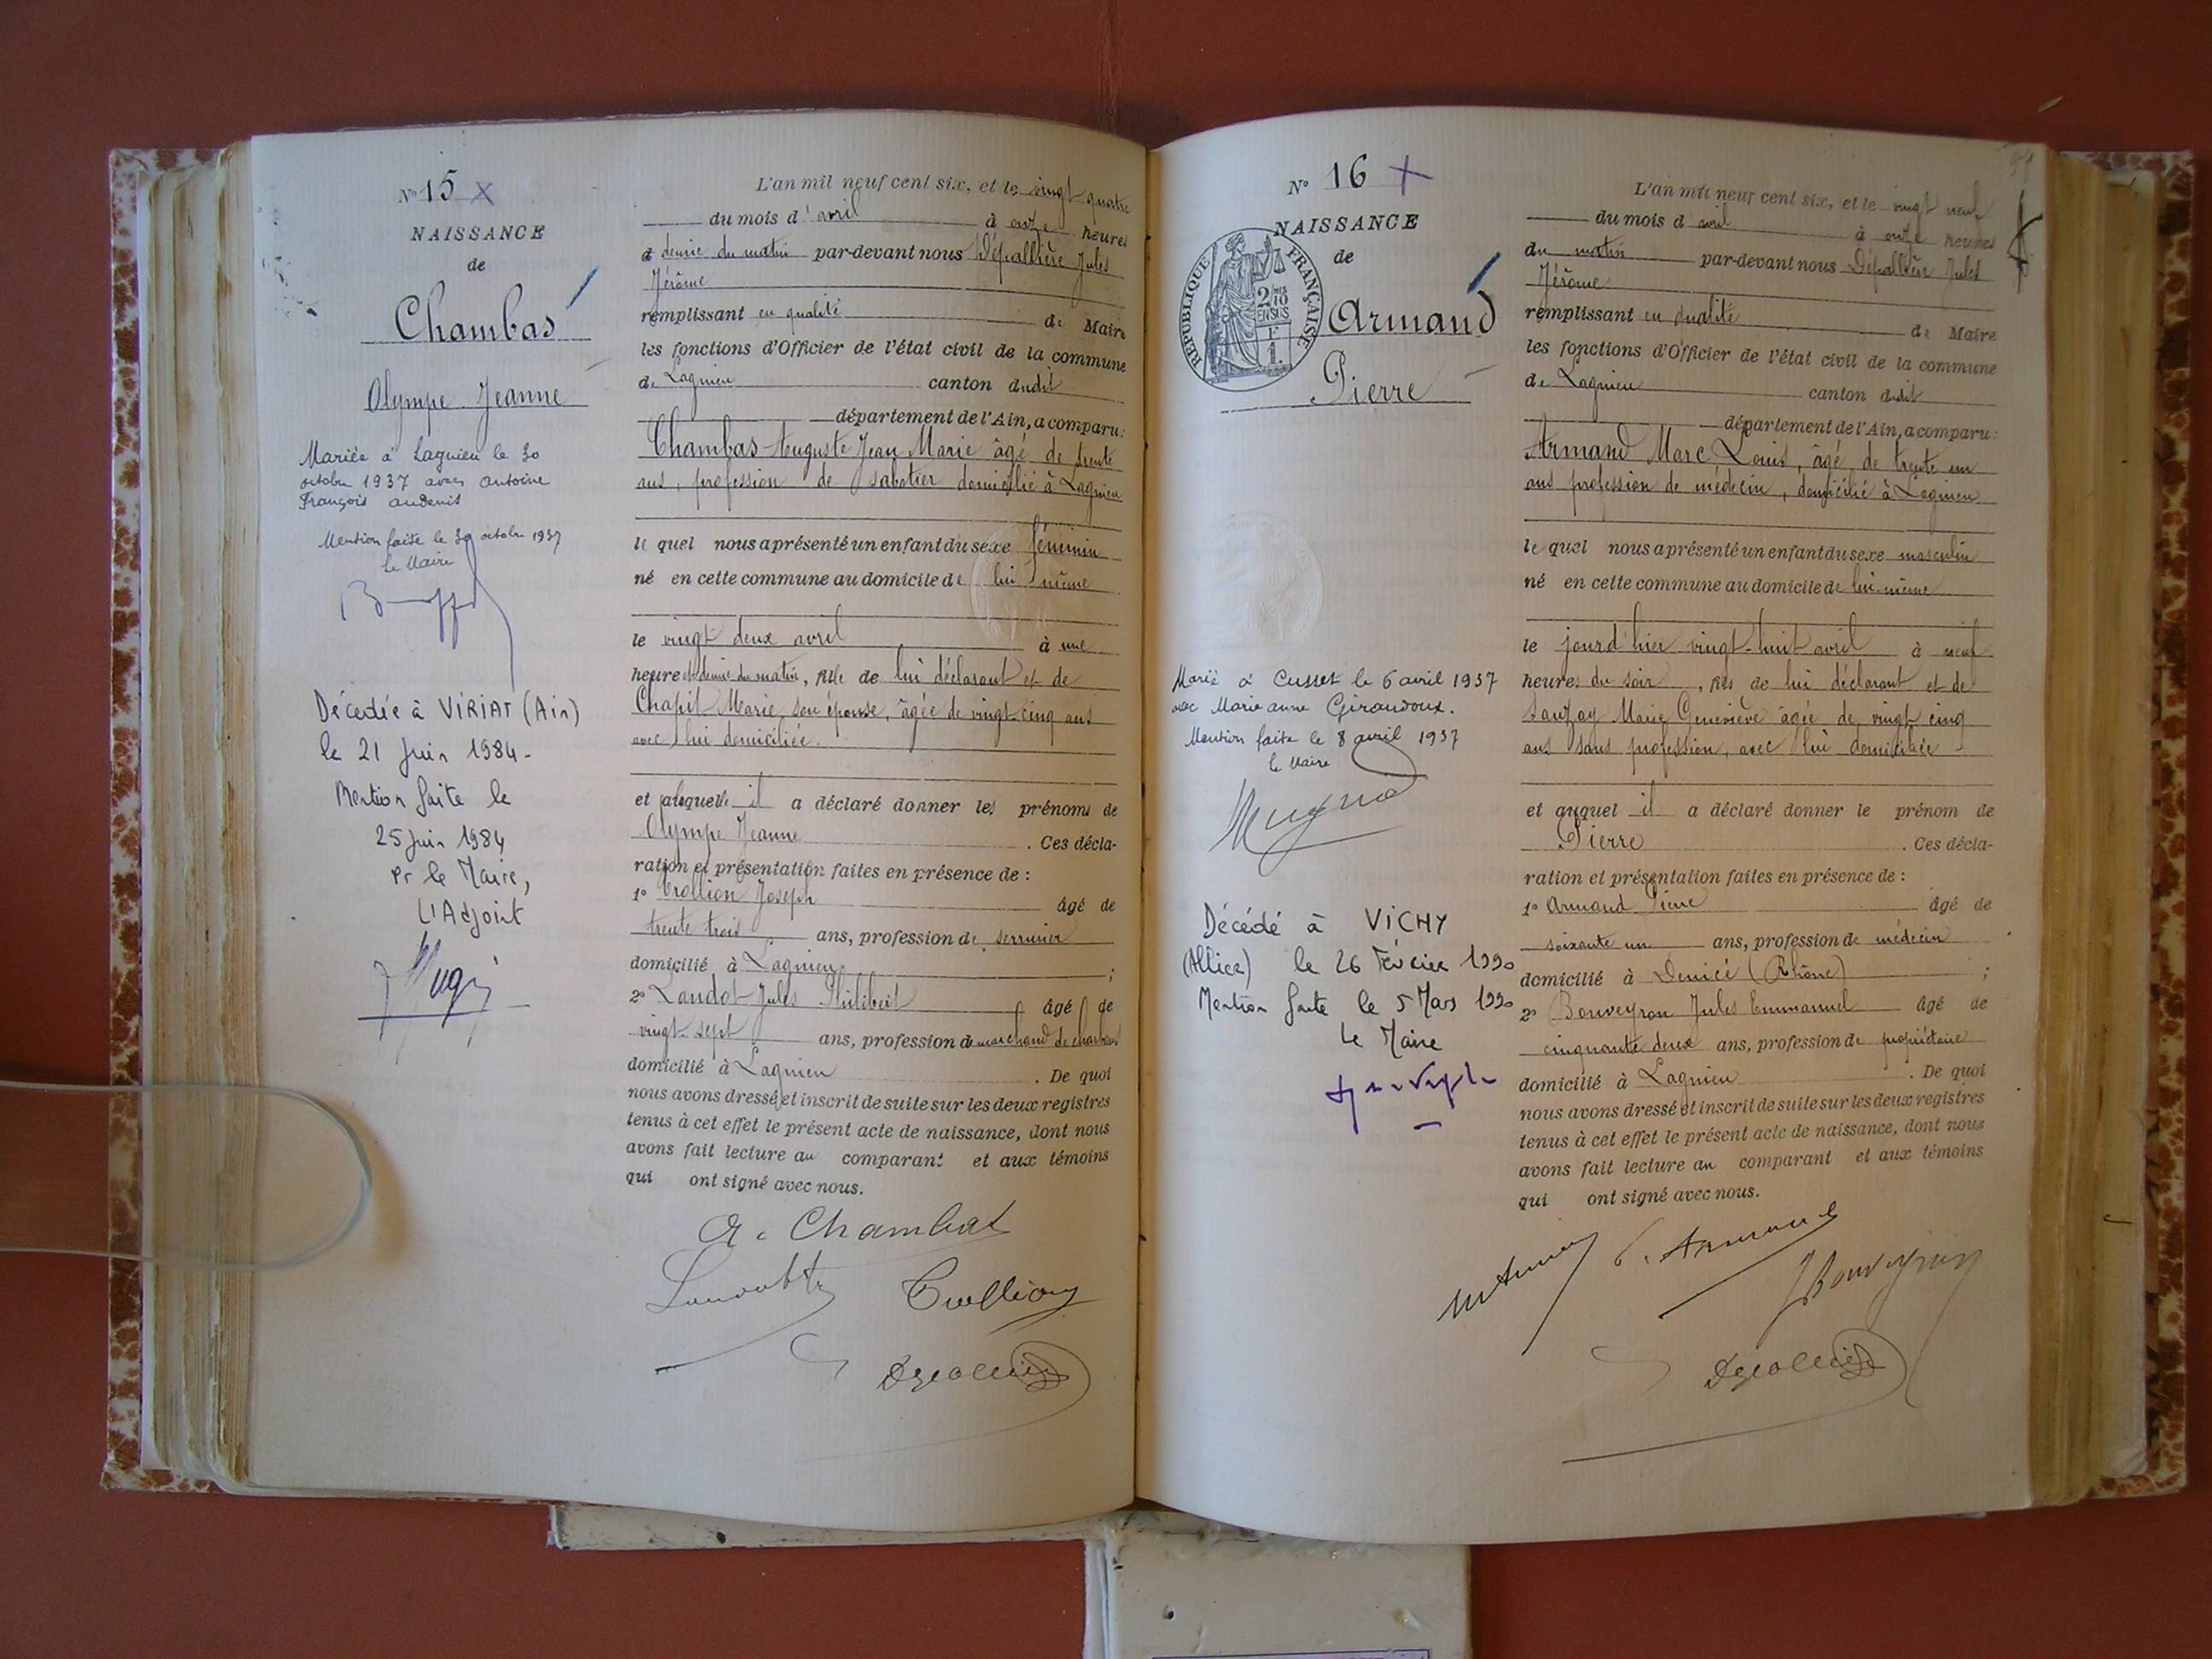 N° 15 X
NAISSANCE
de
Chambas
Olympe Jeanne
Mariée à Lagnieu le 30
octobre 1937 avec Antoine
François Audenis
Mention faite le 30 octobre 1937
le Maire
Décédée à VIRIAT (Ain)
le 21 Juin 1984-
Mention faite le
25 Juin 1984
Pr le Maire,
L'Adjoint
L'an mil neuf cent six, et le vingt quatre
du mois d'avril à onze heures
et demie du matin par-devant nous Dépallière Jules
Jérôme
remplissant en qualité de Maire
les fonctions d'Officier de l'état civil de la commune
de Lagnieu canton dudit
département de l'Ain, a comparu:
Chambas Auguste Jean Marie âgé de trente
ans, profession de sabotier domicilié à Lagnieu
le quel nous a présenté un enfant du sexe féminin
né en cette commune au domicile de lui même
le vingt deux avril à une
heure et demie du matin, fille de lui déclarant et de
Marie son épouse, âgée de vingt cinq ans
avec lui domiciliée.
et a laquelle il a déclaré donner les prénoms de
Olympe Jeanne . Ces décla-
ration et présentation faites en présence de :
1° Trollion Joseph âgé de
trente trois ans, profession de serrurier
domicilié à Lagnieu ;
2° Jules Philibert âgé de
vingt-sept ans, profession de marchand de charbons
domicilié à Lagnieu . De quoi
nous avons dressé et inscrit de suite sur les deux registres
tenus à cet effet le présent acte de naissance, dont nous
avons fait lecture au comparant et aux témoins
qui ont signé avec nous.
A. Chambas
Trollion
N° 16 X
NAISSANCE
de
REPUBLIQUE FRANÇAISE
2/10
EN SUS
1 F
Armand
Pierre
Marié à Cusset le 6 avril 1937
avec Marie Anne Giraudoux.
Mention faite le 8 avril 1937
le Maire
Décédé à VICHY
(Allier) le 26 Février 1990
Mention faite le 5 Mars 1990
Le Maire
L'an mil neuf cent six, et le vingt neuf
du mois d'avril à onze heures
du matin par-devant nous Dépallière Jules
Jérôme
remplissant en qualité de Maire
les fonctions d'Officier de l'état civil de la commune
de Lagnieu canton dudit
département de l'Ain, a comparu:
Armand Marc Louis, âgé de trente un
ans profession de médecin, domicilié à Lagnieu
le quel nous a présenté un enfant du sexe masculin
né en cette commune au domicile de lui-même
le jourd'hier vingt-huit avril à neuf
heures du soir, fils de lui déclarant et de
Marie Geneviève âgée de vingt cinq
ans sans profession, avec lui domiciliée
et auquel il a déclaré donner le prénom de
Pierre . Ces décla-
ration et présentation faites en présence de :
1° Armand Pierre âgé de
soixante un ans, profession de médecin
domicilié à Denicé (Rhône) ;
2° Bouveyron Jules Emmanuel âgé de
cinquante deux ans, profession de propriétaire
domicilié à Lagnieu . De quoi
nous avons dressé et inscrit de suite sur les deux registres
tenus à cet effet le présent acte de naissance, dont nous
avons fait lecture au comparant et aux témoins
qui ont signé avec nous.
P. Armand
JBouveyron